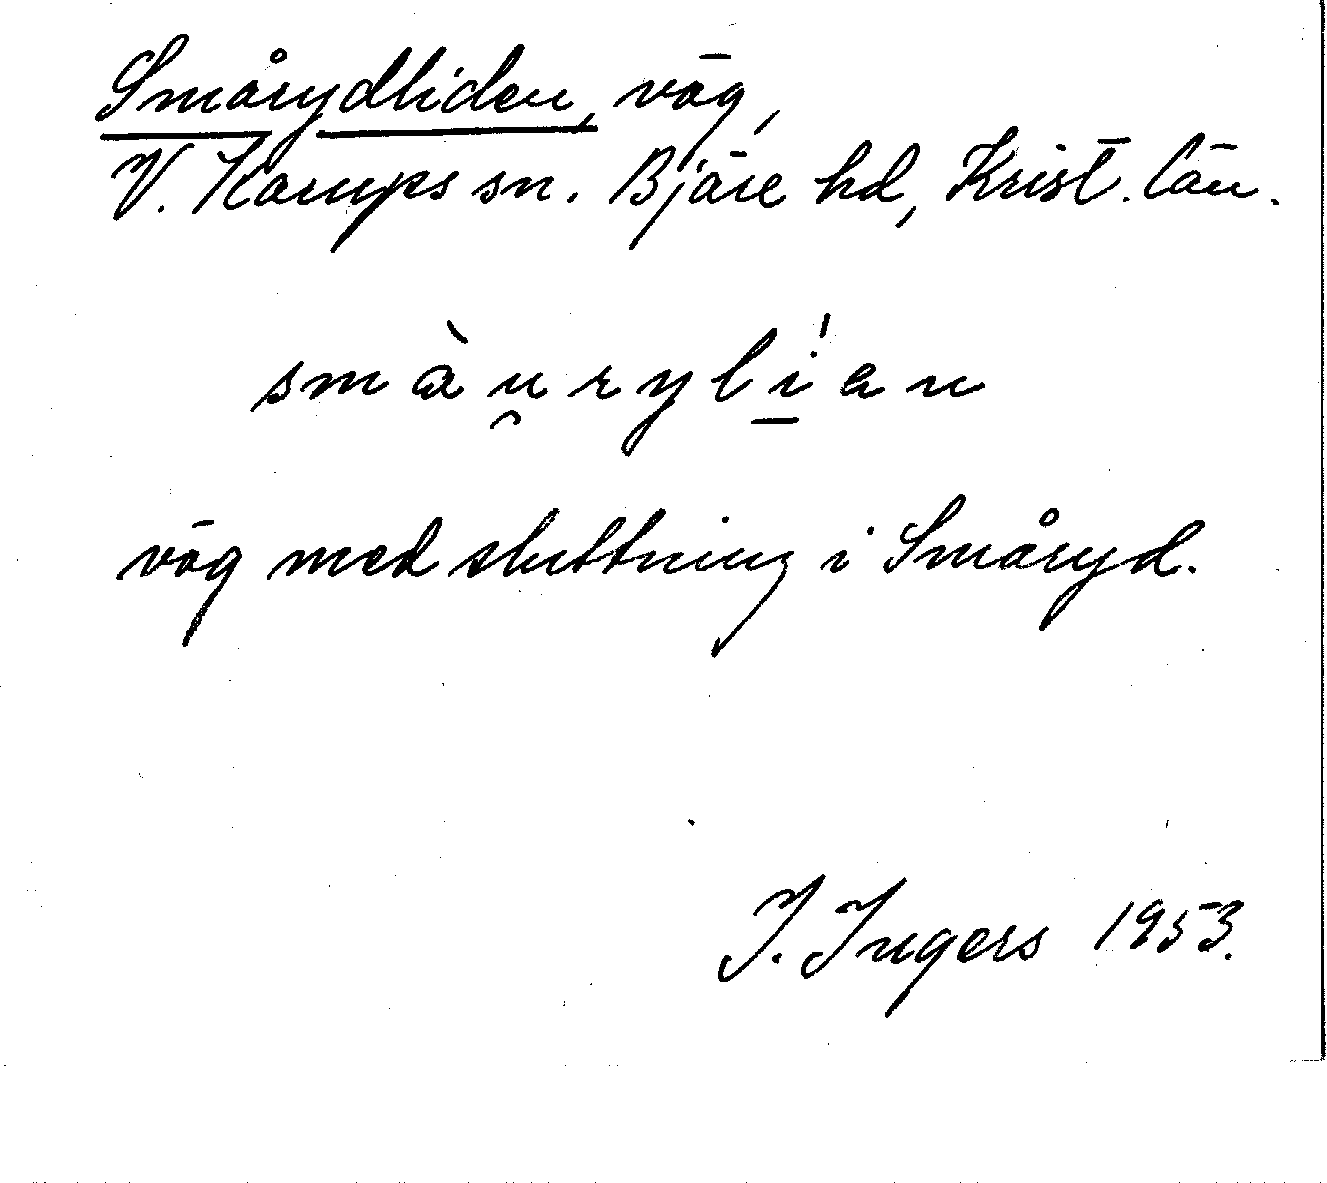 Smårydliden, väg,
V. Karups sn. Bjäre hd, Krist. län.
smàu̯ryli̲'an
väg med sluttning i Småryd.
I. Ingers 1953.